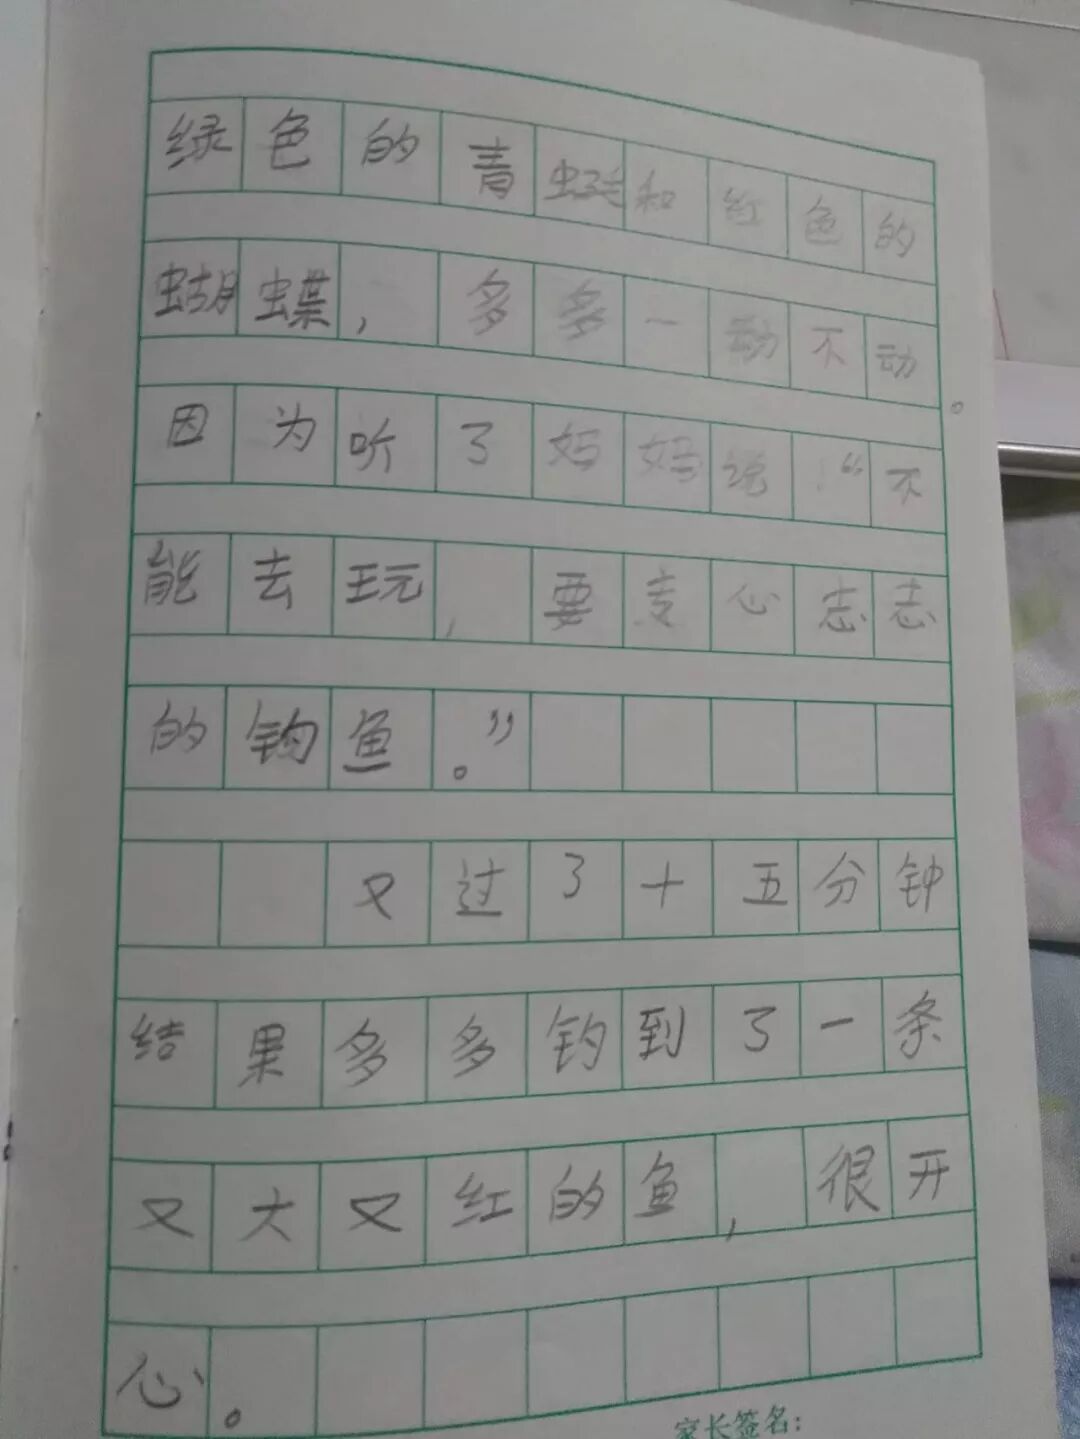 绿色的青蜓和红色的
蝴蝶，多多一动不动。
因为听了妈妈说：“不
能去玩，要专心志志
的钓鱼。”
又过了十五分钟
结果多多钓到了一条
又大又红的鱼，很开
心。
家长签名：